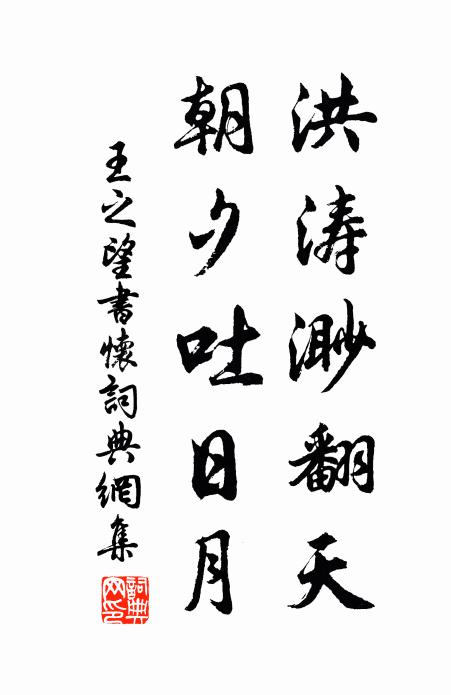 洪涛渺翻天
朝夕吐日月
王之望書懷詞典網集
詞典網印